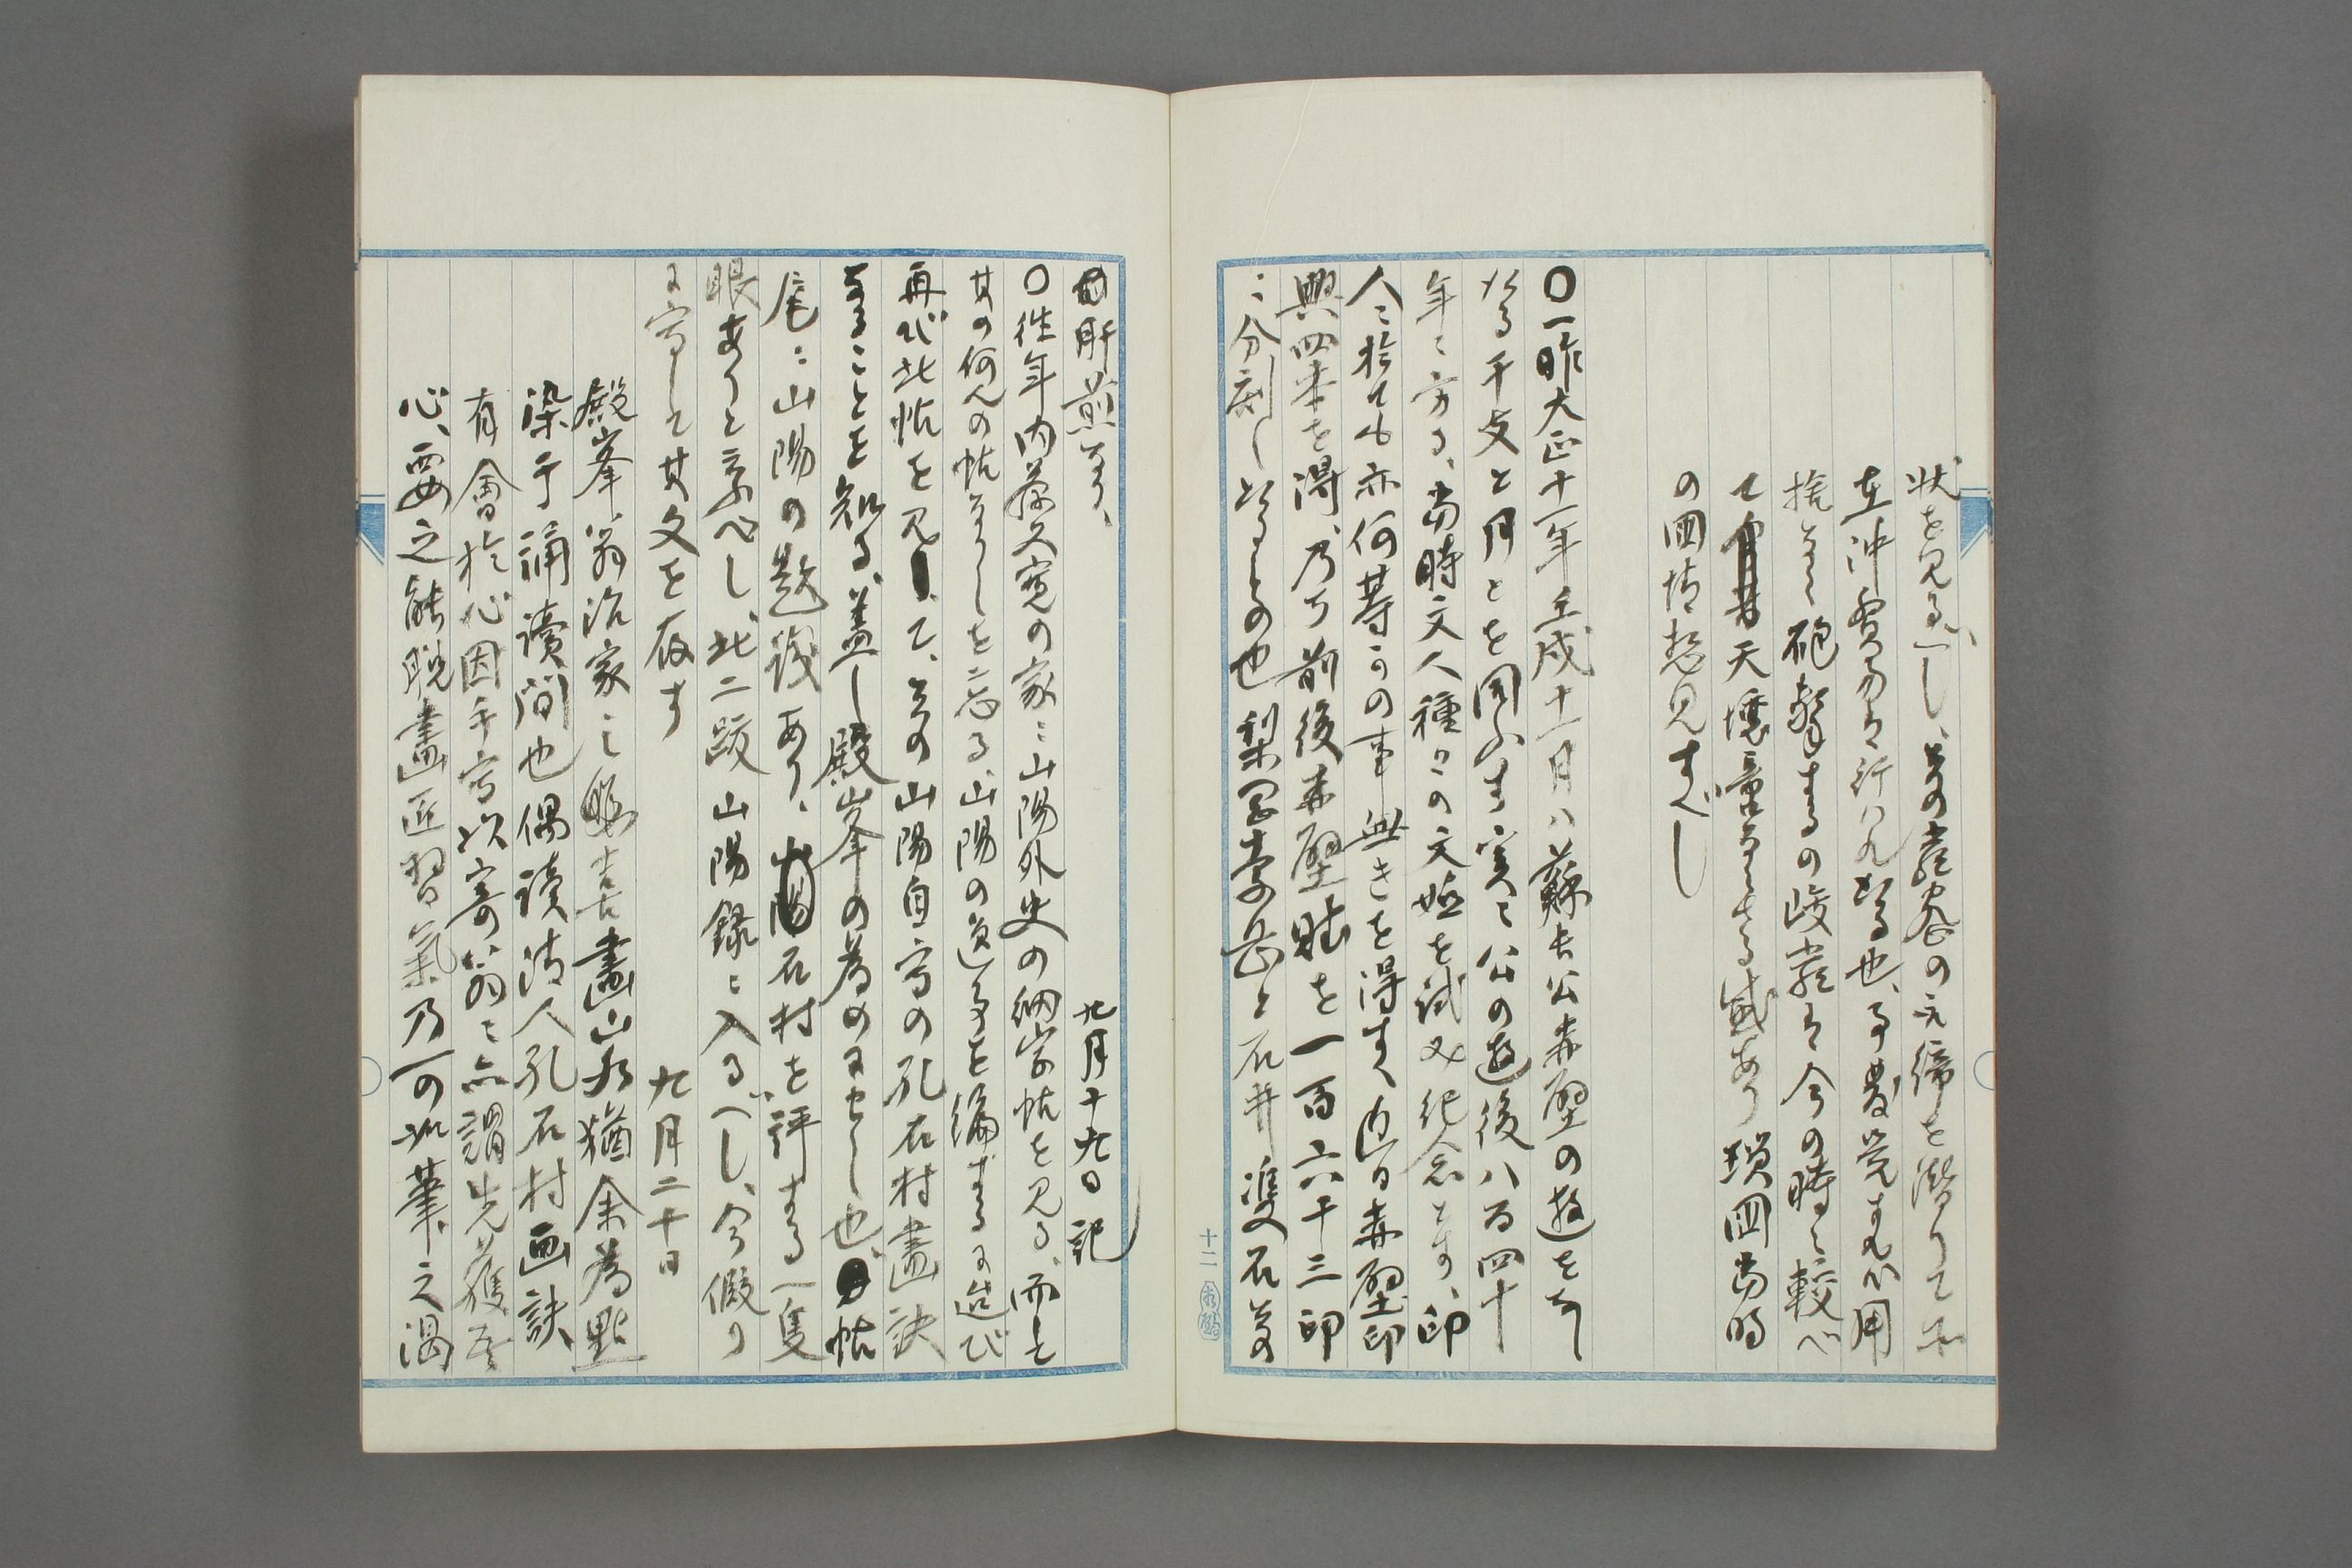 状を見るべし、其の甞ての元締を潜りて
在沖貿易は行はれたる也、事発覚すれハ用
捨なく砲撃するの峻厳は今の時に較べ
て天壌啻ならさる感あり 鎖国当時
の国情想見すべし
〇一昨大正十一年壬戌十一月ハ蘇長公赤壁の遊をなし
たる干支と月とを同ふす、実に公の遊後八百四十
年に方る、当時文人種々の文墟を試み紀念とす、印
人に於ても亦何等かの事無きを得す、内に赤壁印
興四本を得、乃ち前後赤壁賦を一百六十三印
ニ分刻したるもの也 梨岡素岳と石井雙石其の
肝煎なり、
九月十九日記
〇往年内藤久寛の家ニ山陽外史の細字帖を見る、而し
其の何人の帖なりしを忘る、山陽の逸事を編するに迨び
再び此帖を見て、其の山陽自写の孔石村畫訣
なることを知る、蓋し殿峯の為めにせし也、帖
尾ニ山陽の題識あり、石村を評する一隻
眼ありと云ふべし、此二跋山陽録に入るべし、今假り
に写して其文を存す
九月二十日
殿峯翁治家之暇喜畫山水猶余為點
染于誦讀間也偶讀清人孔石村画訣
有會於心因手写以寄翁々亦謂先獲吾
心、要之能脱畫匠習氣乃可此筆之渇
十二